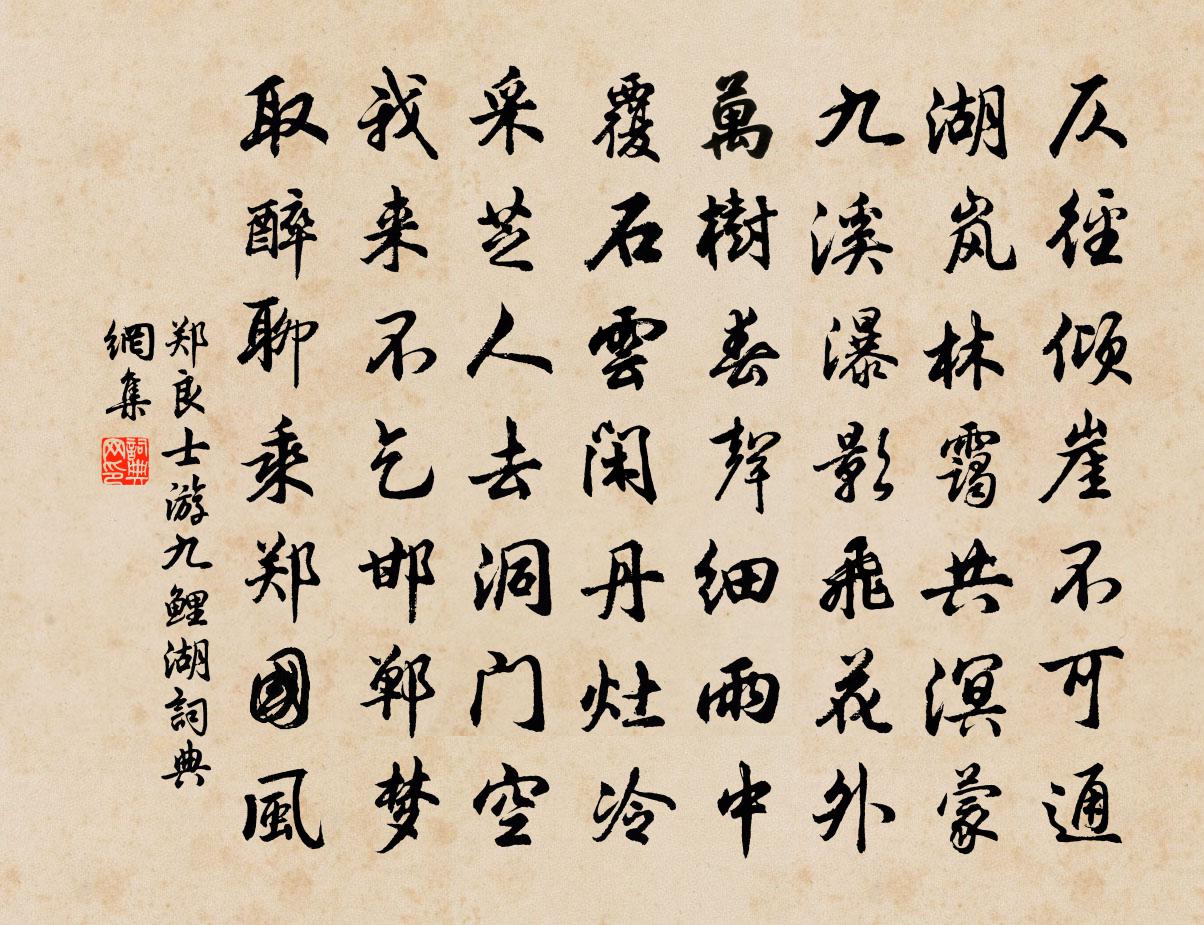 仄徑傾崖不可通
湖岚林靄共溟蒙
九溪瀑影飛花外
萬樹春聲細雨中
覆石雲閑丹灶冷
采芝人去洞门空
我来不乞邯鄲梦
取醉聊乘郑國風
郑良士游九鲤湖詞典
網集
詞典网印